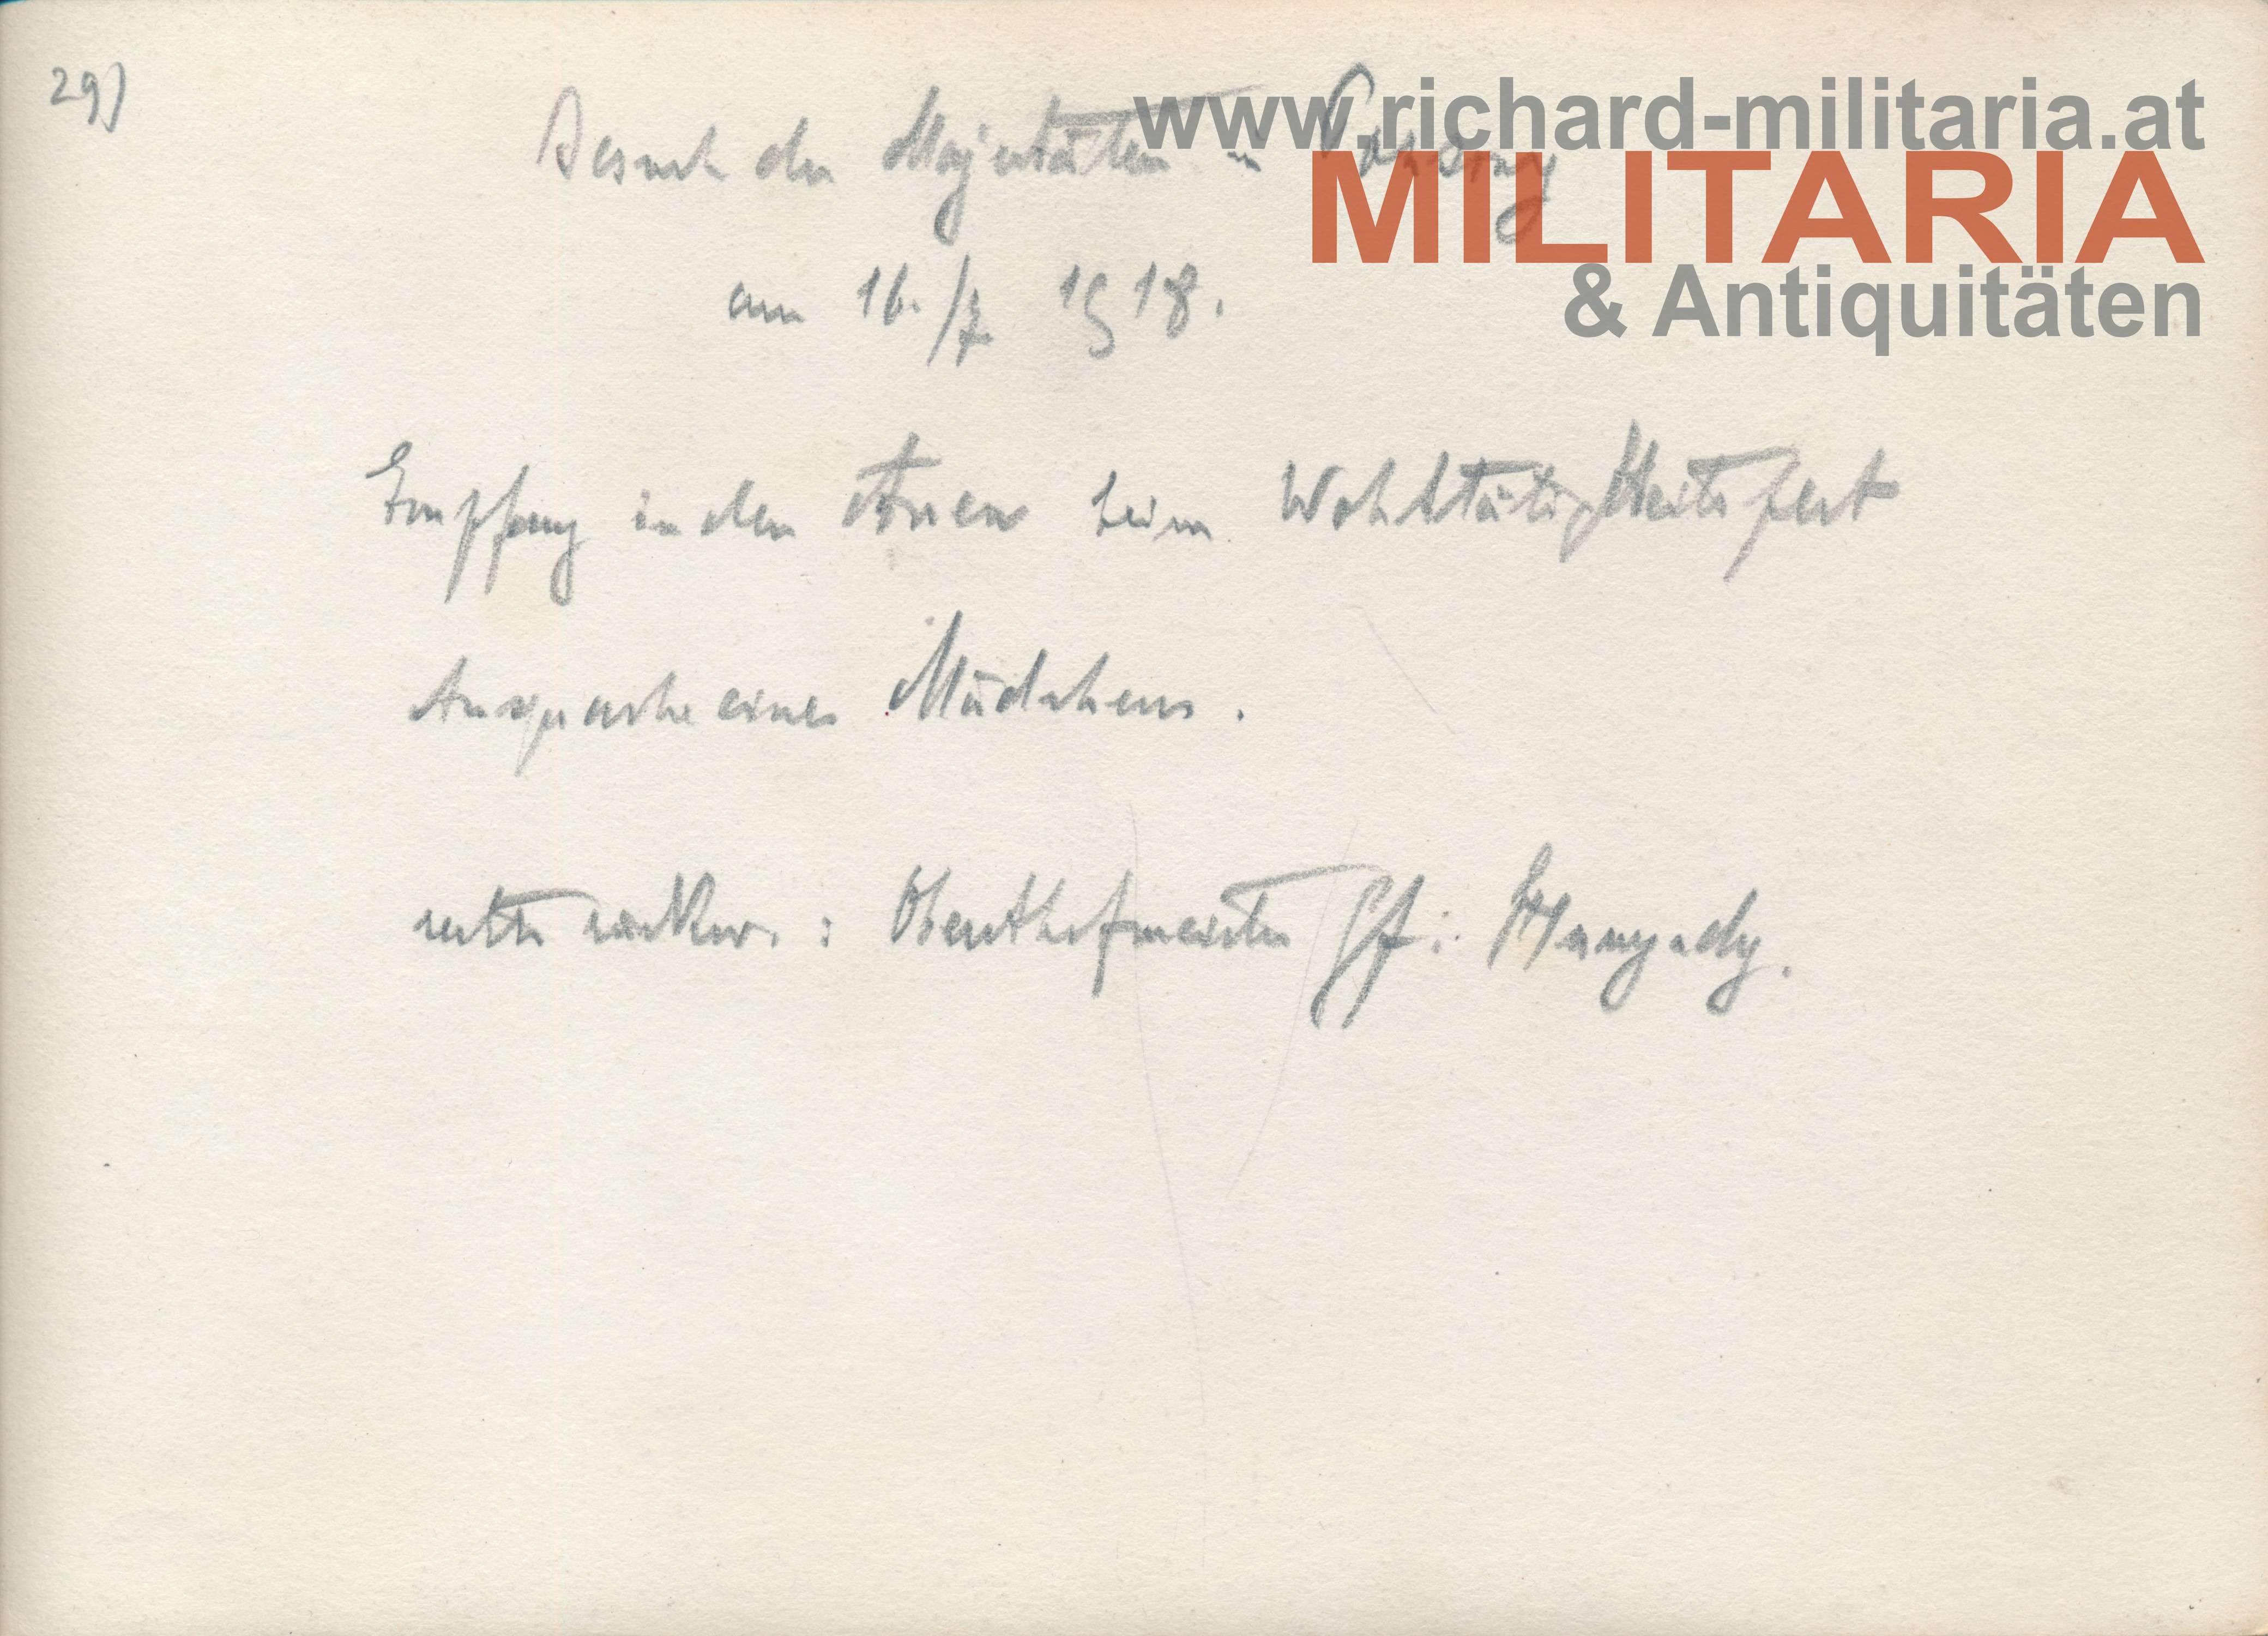 29)
www.richard-militaria.at
MILITARIA
& Antiquitäten
Besuch der Majestäten in Pozsony
am 16./7. 1918.
Empfang in den Auen beim Wohltätigkeitsfest
Ansprache eines Mädchens.
rechts : Obersthofmeister Gf: Hunyady.